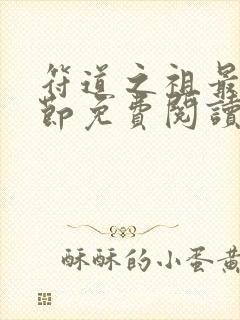 符道之祖最
節免費閱讀
酥酥的小蛋黃